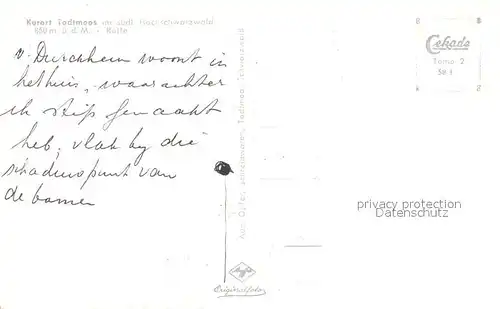 Kurort Todtmoos im südl. Hochschwarzwald
850 m ü. d. M. - Rütte
v. Durckheim woont in
het huis, waarachter
ik stip gemaakt
heb, vlak by die
schaduwpunt van
de bomen
Cekade
Tomo 2
58 1
privacy protection
Datenschutz
Originalfoto